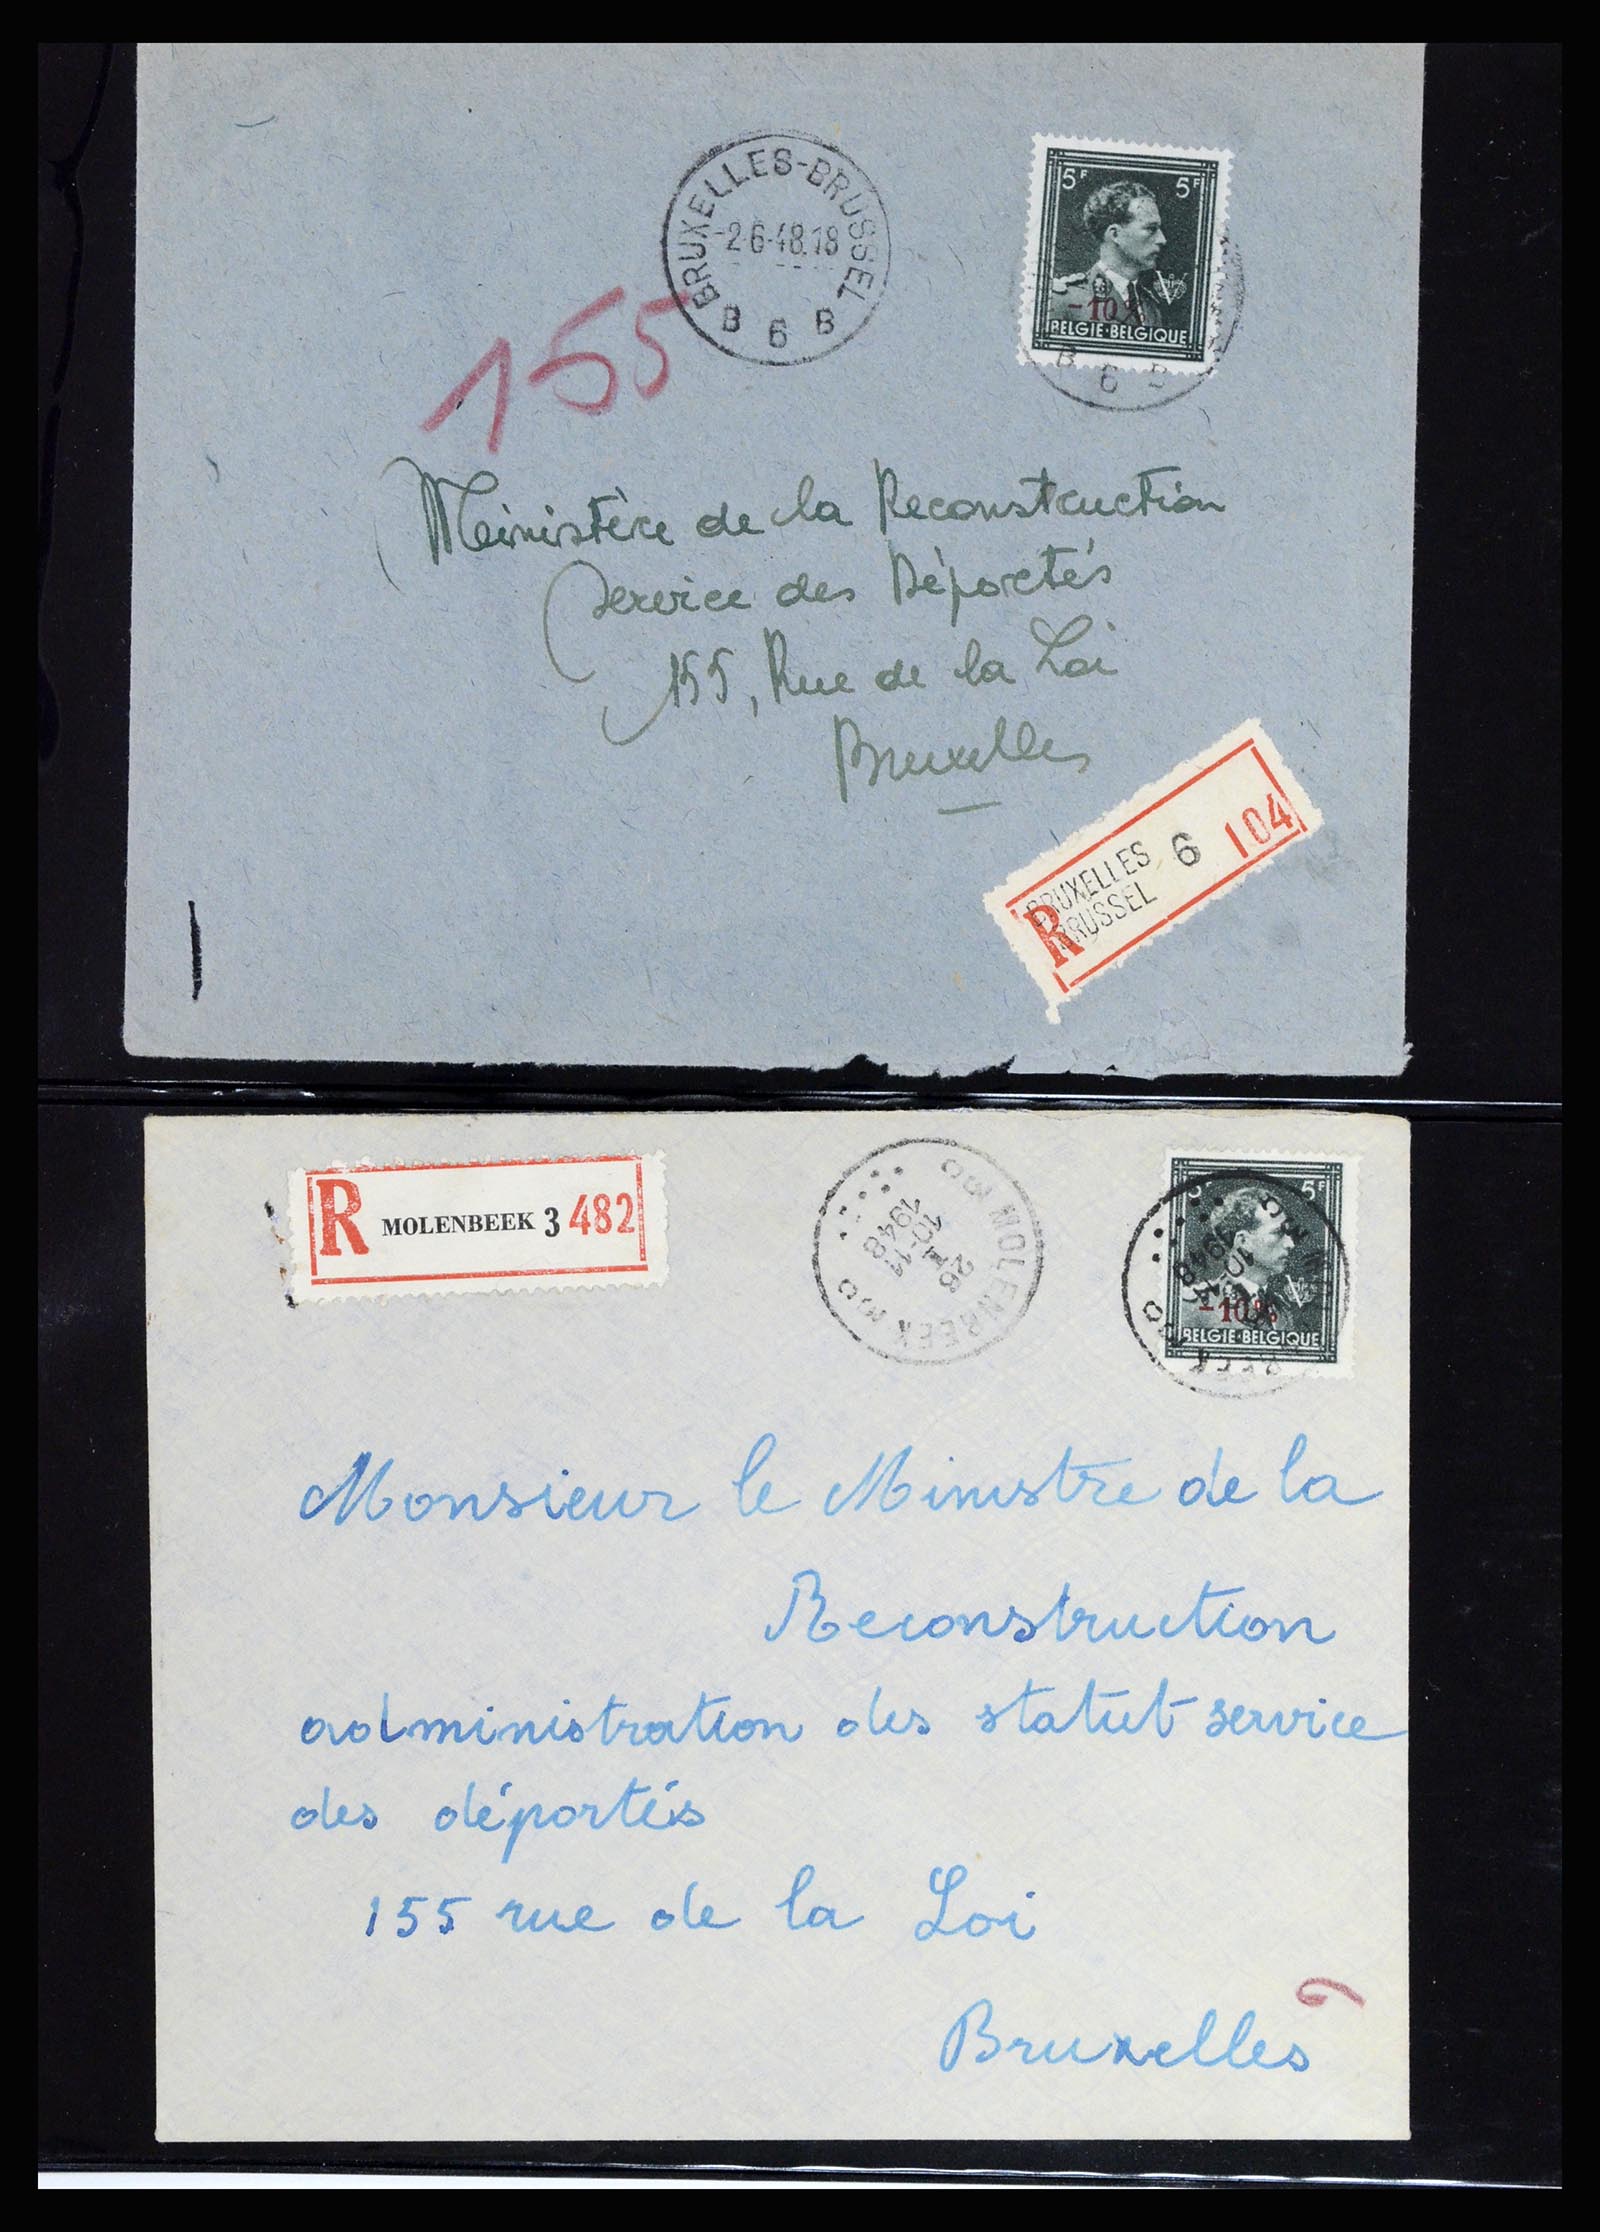 BRUXELLES-BRUSSEL
-2-6-48.18
B 6 B
5F 5F
-10%
BELGIE-BELGIQUE
B 6 B
155
Ministère de la Reconstruction
Service des Déportés
155, Rue de la Loi
Bruxelles
R BRUXELLES BRUSSEL 6 104
R MOLENBEEK 3 482
MOLENBEEK
26
10-11
1948
5F 5F
-10%
BELGIE-BELGIQUE
Monsieur le Ministre de la
Reconstruction
administration des statut service
des déportés
155 rue de la Loi
6
Bruxelles